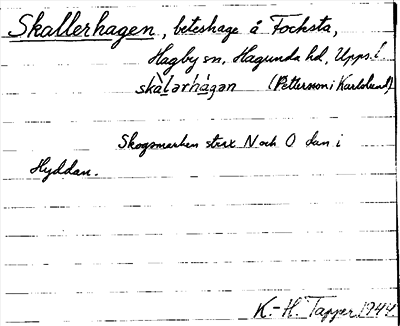 Skallerhagen, beteshage å Focksta,
Hagby sn, Hagunda hd, Upps. l.
skàlarhágan (Pettersson i Karlslund)
Skogsmarken strax N och O dan i
Hyddan.
K.-H. Tapper 1944.